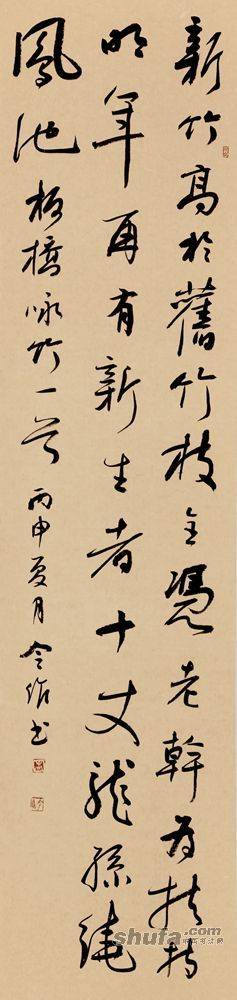 新竹高於舊竹枝全憑老幹為扶持
明年再有新生者十丈龍孫繞
鳳池 板橋咏竹一首 丙申夏月 书
shufa.com